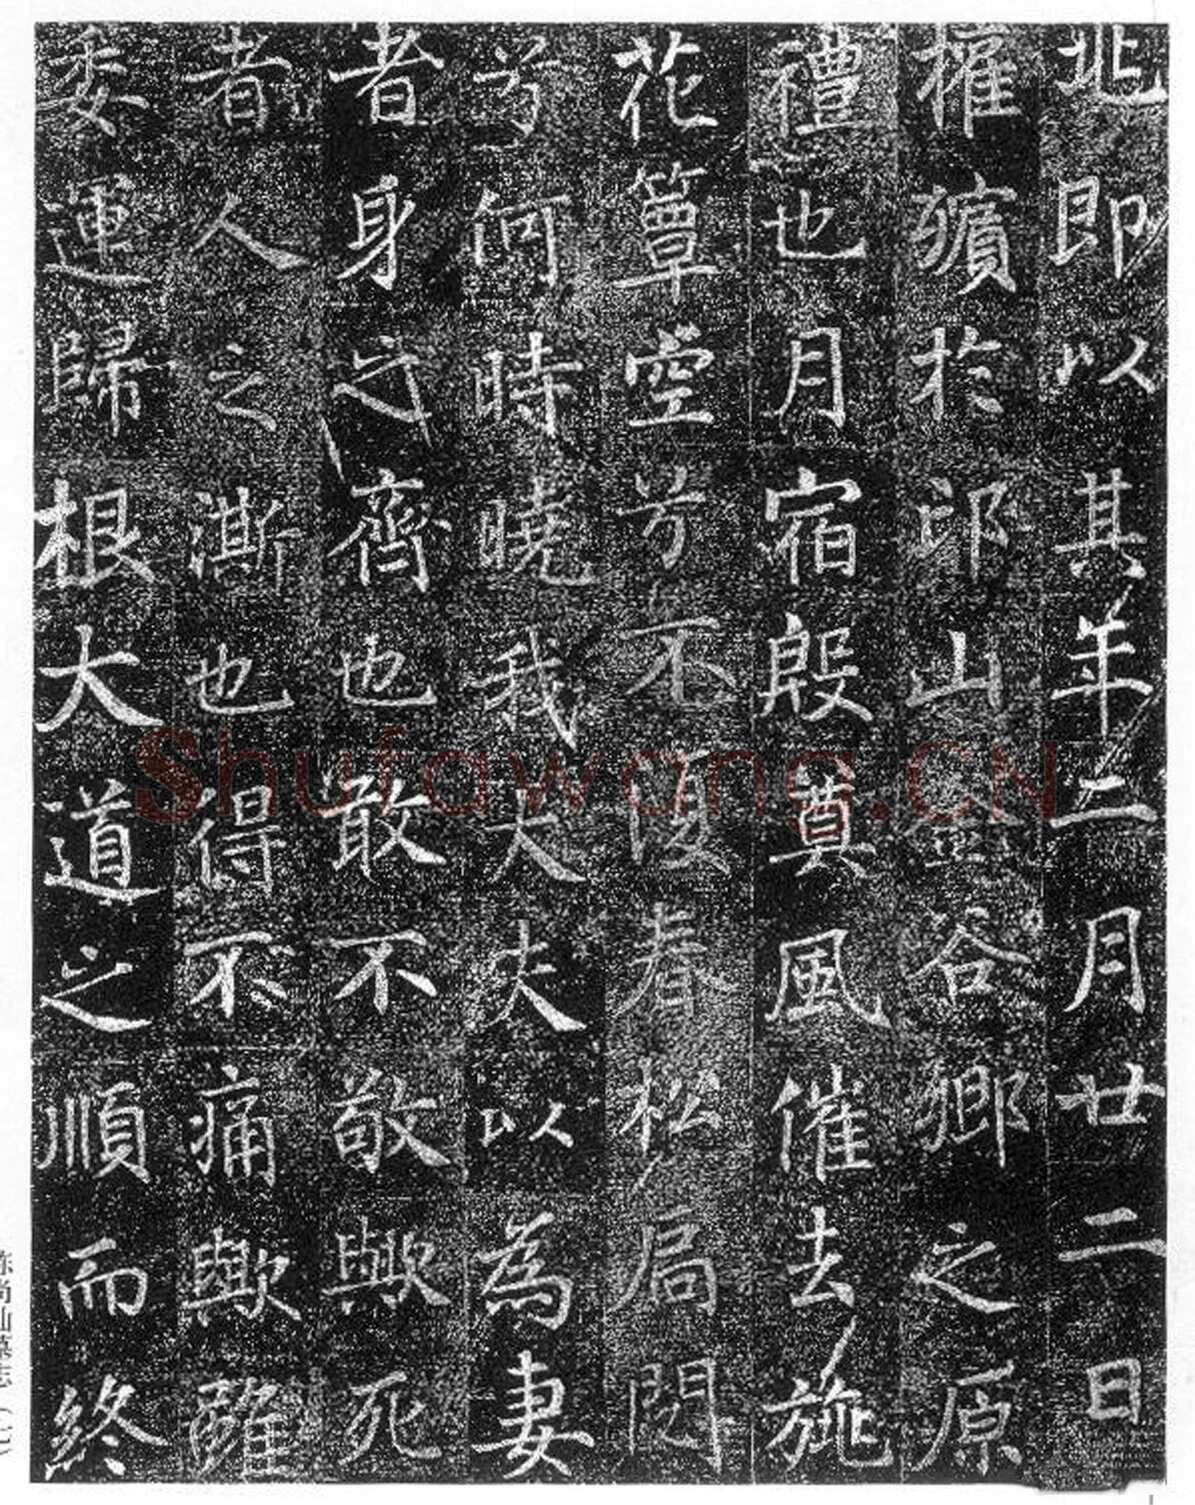 兆即以其年二月廿二日
權殯於邙山金谷鄉之原
禮也月宿殷奠風催去旐
花簟空兮不復春松扃閟
兮何時曉我大夫以為妻
者身之齊也敢不敬歟死
者人之澌也得不痛歟雖
委運歸根大道之順而終
Shufawang.CN